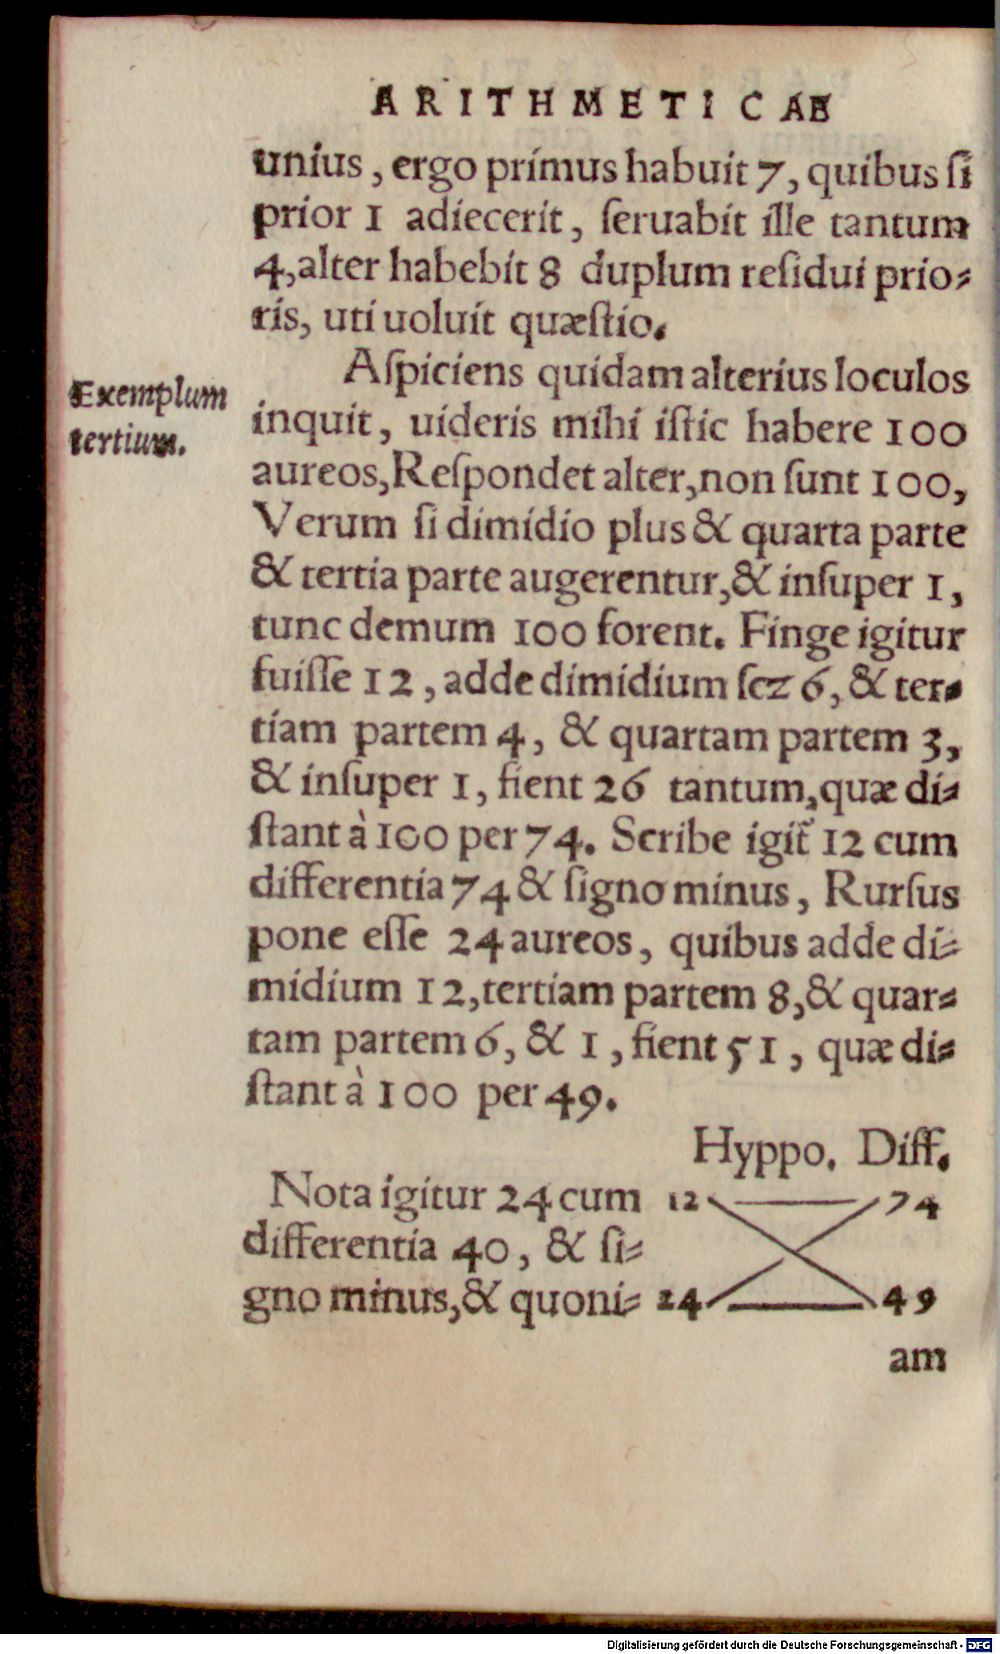 ARITHMETICAE
unius, ergo primus habuit 7, quibus ſi
prior 1 adiecerit, ſeruabit ille tantum
4, alter habebit 8 duplum reſidui prio-
ris, uti uoluit quæſtio.
Exemplum
tertium.
Aſpiciens quidam alterius loculos
inquit, uideris mihi iſtic habere 100
aureos, Reſpondet alter, non ſunt 100,
Verum ſi dimidio plus & quarta parte
& tertia parte augerentur, & inſuper 1,
tunc demum 100 forent. Finge igitur
fuiſſe 12, adde dimidium ſcz 6, & ter-
tiam partem 4, & quartam partem 3,
& inſuper 1, fient 26 tantum, quæ di-
ſtant à 100 per 74. Scribe igit̃ 12 cum
differentia 74 & ſigno minus, Rurſus
pone eſſe 24 aureos, quibus adde di-
midium 12, tertiam partem 8, & quar-
tam partem 6, & 1, fient 51, quæ di-
ſtant à 100 per 49.
Hyppo. Diff.
Nota igitur 24 cum
differentia 40, & ſi-
gno minus, & quoni-
12 74
24 49
am
Digitalisierung gefördert durch die Deutsche Forschungsgemeinschaft - DFG